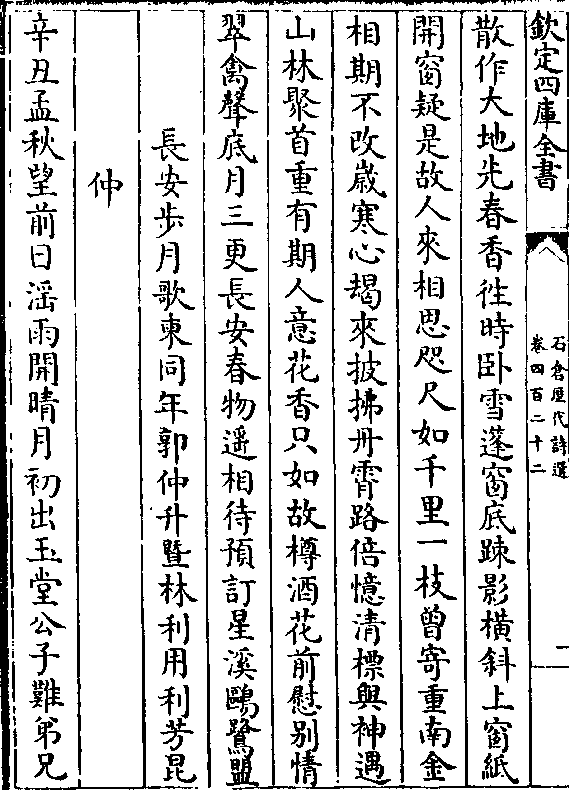 欽定四庫全書
石倉歷代詩選
卷四百二十二
二
散作大地先春香徃時卧雪蓬窗底踈影橫斜上窗紙
開窗疑是故人來相思咫尺如千里一枝曽寄重南金
相期不改歳寒心朅來披拂丹霄路倍憶清標與神遇
山林聚首重有期人意花香只如故樽酒花前慰别情
翠禽聲底月三更長安春物遥相待預訂星溪鷗鷺盟
長安歩月歌柬同年郭仲升暨林利用利芳昆
仲
辛丑孟秋望前日滛雨開晴月初出玉堂公子難弟兄